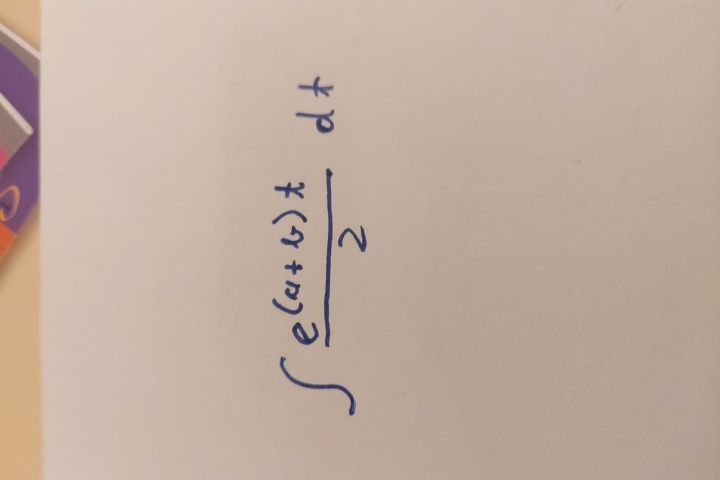 ∫ e^{(a+b)t}/2 dt